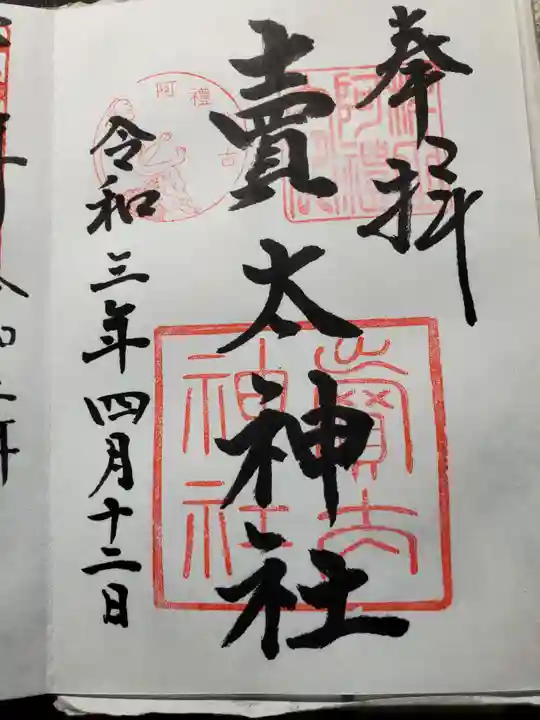 奉拝
賣太神社
令和三年四月十二日
賣太
神社
阿禮